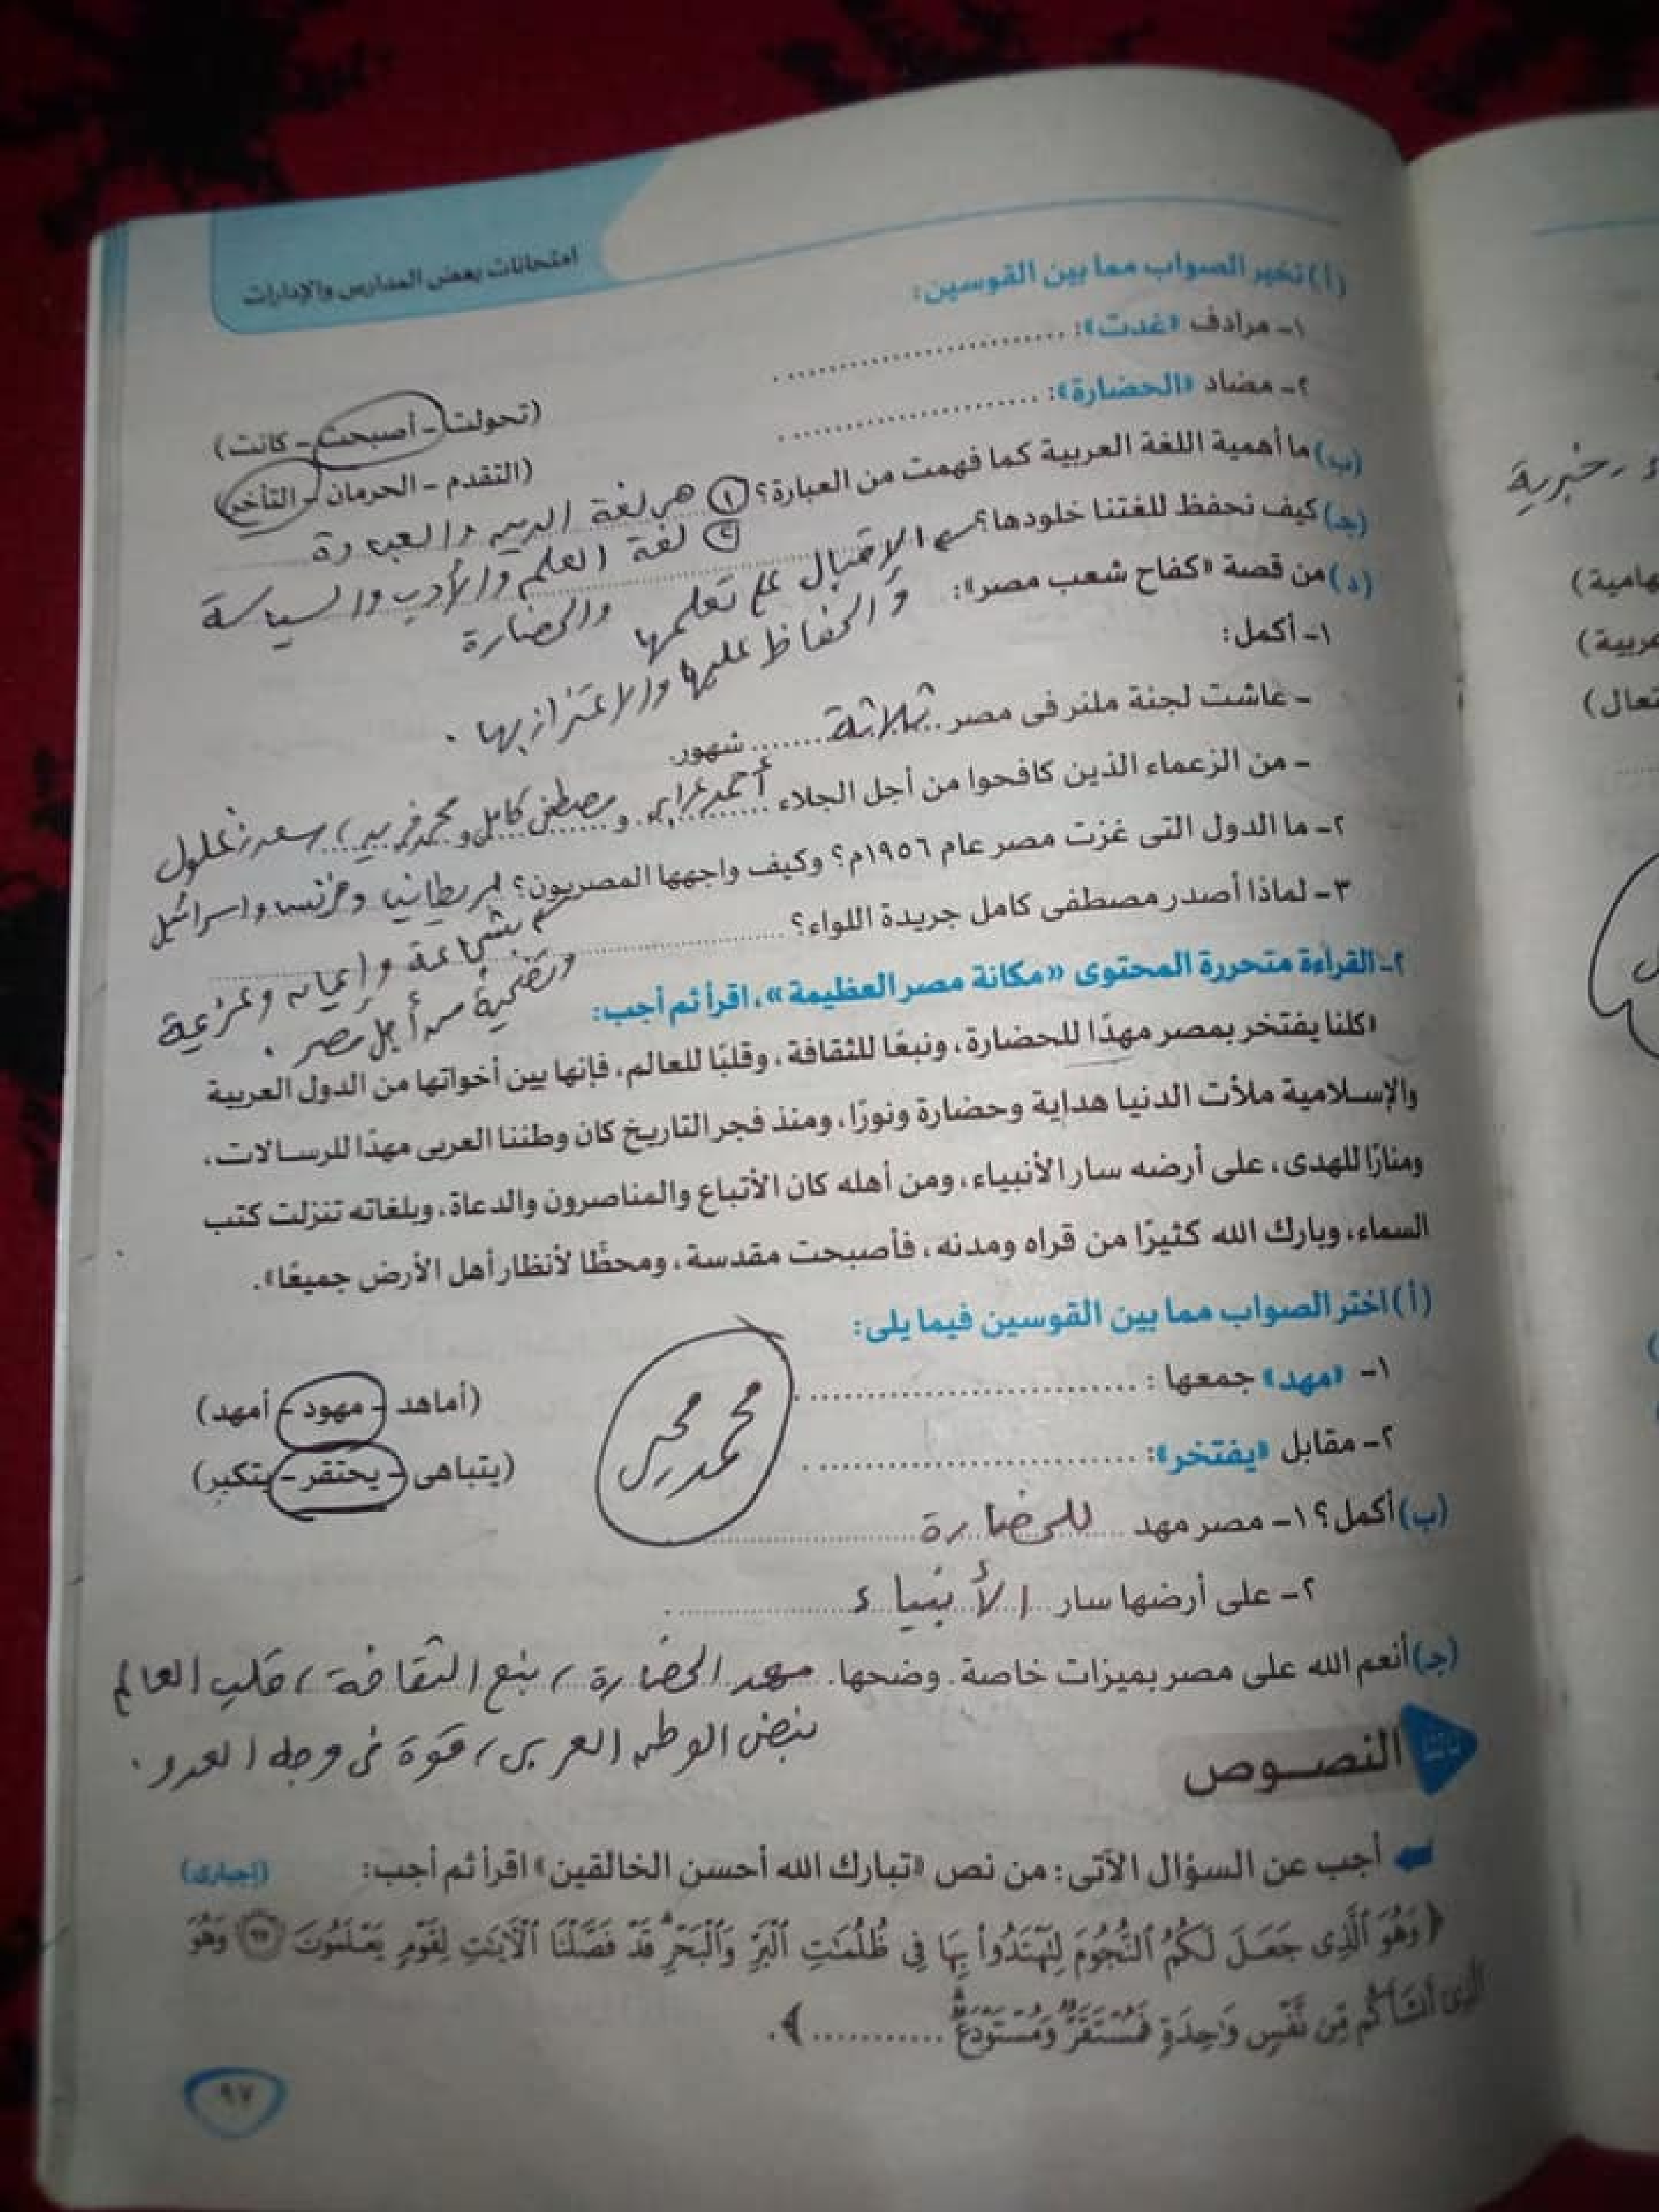 امتحانات بعض المدارس والإدارات
(أ) تخير الصواب مما بين القوسين:
١- مرادف «غدت»: ............ (تحولت - أصبحت - كانت)
٢- مضاد «الحضارة»: ............ (التقدم - الحرمان - التأخر)
(ب) ما أهمية اللغة العربية كما فهمت من العبارة؟ ① هي لغة الدين والعبادة
② لغة العلم والأدب والسياسة
والحضارة
(جـ) كيف نحفظ للغتنا خلودها؟ الإقبال على تعلمها
والحفاظ عليها والاعتزاز بها .
(د) من قصة «كفاح شعب مصر»:
١- أكمل:
- عاشت لجنة ملنر فى مصر ثلاثة شهور.
- من الزعماء الذين كافحوا من أجل الجلاء أحمد عرابى و مصطفى كامل و محمد فريد ، سعد زغلول
٢- ما الدول التى غزت مصر عام ١٩٥٦م؟ وكيف واجهها المصريون؟ بريطانيا وفرنسا واسرائيل
بشجاعة وإيمان وعزيمة
وتضحية من أجل مصر .
٣- لماذا أصدر مصطفى كامل جريدة اللواء؟ ............
٢- القراءة متحررة المحتوى «مكانة مصر العظيمة»، اقرأ ثم أجب:
«كلنا يفتخر بمصر مهدًا للحضارة، ونبعًا للثقافة، وقلبًا للعالم، فإنها بين أخواتها من الدول العربية
والإسلامية ملأت الدنيا هداية وحضارة ونورًا، ومنذ فجر التاريخ كان وطننا العربى مهدًا للرسالات،
ومنارًا للهدى، على أرضه سار الأنبياء، ومن أهله كان الأتباع والمناصرون والدعاة، وبلغاته تنزلت كتب
السماء، وبارك الله كثيرًا من قراه ومدنه، فأصبحت مقدسة، ومحطًّا لأنظار أهل الأرض جميعًا».
(أ) اختر الصواب مما بين القوسين فيما يلى:
١- «مهد» جمعها: ............ (أماهد - مهود - أمهد)
٢- مقابل «يفتخر»: ............ (يتباهى - يحتقر - يتكبر)
محمد
(ب) أكمل؟ ١- مصر مهد للحضارة
٢- على أرضها سار الأنبياء
(جـ) أنعم الله على مصر بميزات خاصة. وضحها. مهد الحضارة ، نبع الثقافة ، قلب العالم
نبض الوطن العربى ، قوة فى وجه العدو .
ثالثًا
النصوص
أجب عن السؤال الآتى: من نص «تبارك الله أحسن الخالقين» اقرأ ثم أجب: (إجبارى)
﴿وَهُوَ ٱلَّذِى جَعَلَ لَكُمُ ٱلنُّجُومَ لِتَهْتَدُوا۟ بِهَا فِى ظُلُمَٰتِ ٱلْبَرِّ وَٱلْبَحْرِ ۗ قَدْ فَصَّلْنَا ٱلْـَٔايَٰتِ لِقَوْمٍ يَعْلَمُونَ ٩٧ وَهُوَ
ٱلَّذِىٓ أَنشَأَكُم مِّن نَّفْسٍ وَٰحِدَةٍ فَمُسْتَقَرٌّ وَمُسْتَوْدَعٌ ۗ ............﴾.
٩٧
خبرية